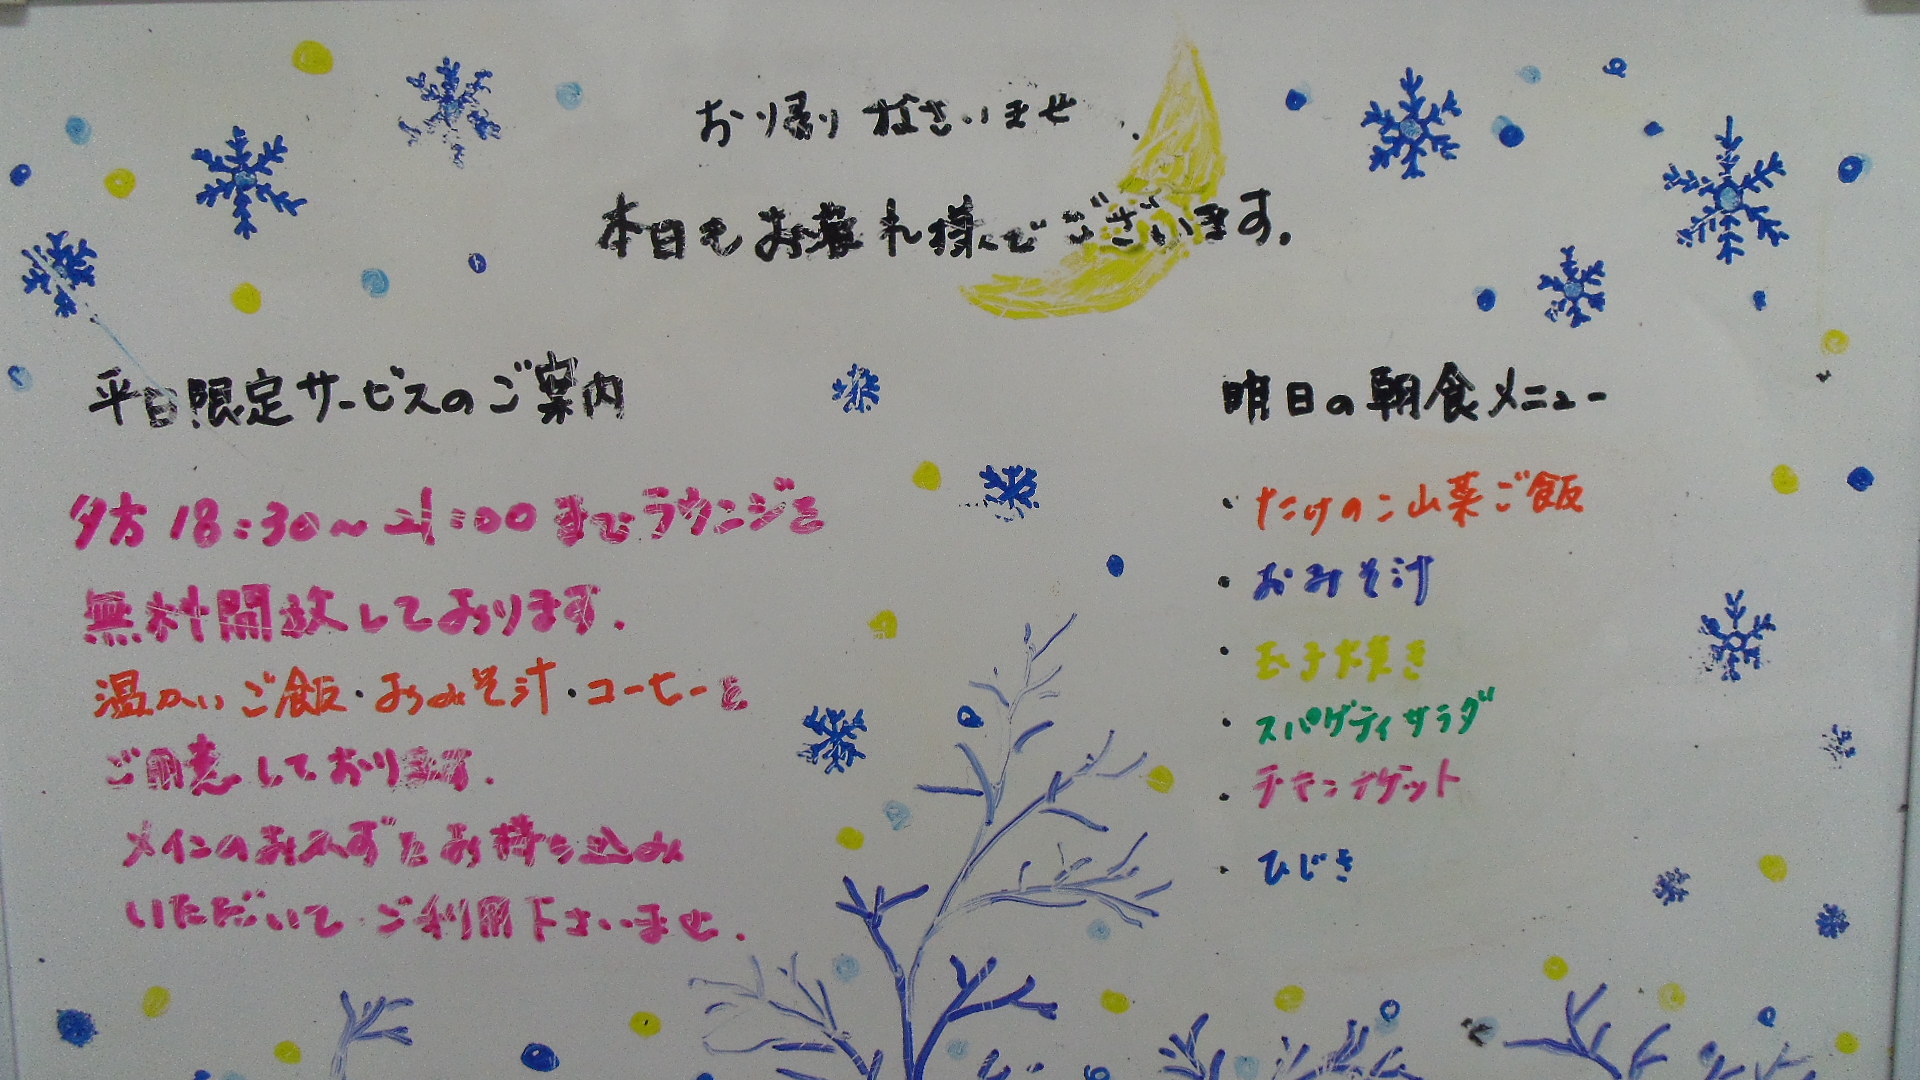 お帰りなさいませ
本日もお疲れ様でございます。
平日限定サービスのご案内
夕方18:30～21:00までラウンジを
無料開放しております。
温かいご飯・おみそ汁・コーヒーを
ご用意しております。
メインのおかずをお持ち込み
いただいてご利用下さいませ。
明日の朝食メニュー
・たけのこ山菜ご飯
・おみそ汁
・玉子焼き
・スパゲティサラダ
・チキンナゲット
・ひじき